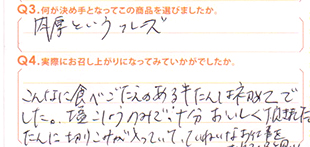 Q3.何が決め手となってこの商品を選びましたか。
肉厚というフレーズ
Q4.実際にお召し上がりになってみていかがでしたか。
こんなに食べごたえのある牛たんは初めてで
した。塩こしょうのみで、十分おいしく頂きました
たんに切りこみが入っていて、ていねいなお仕事を